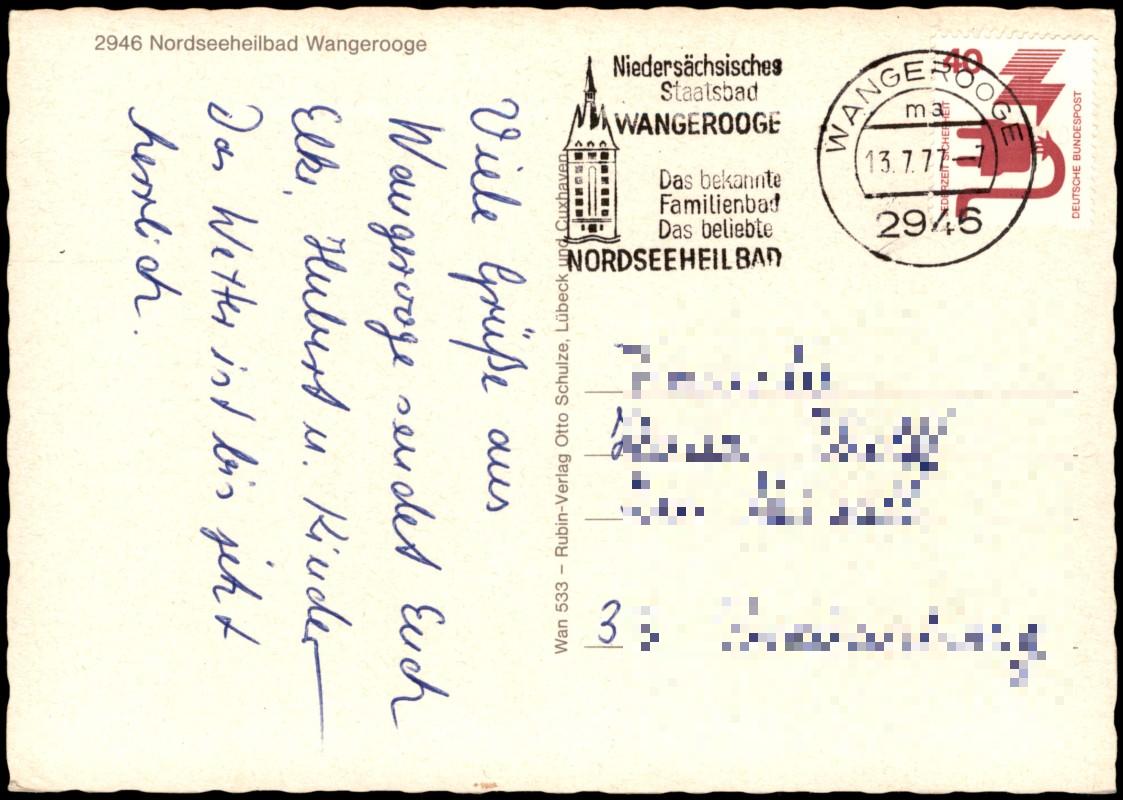 2946 Nordseeheilbad Wangerooge
Viele Grüße aus
Wangerooge sendet Euch
Elke, Hubert u. Kinder
Das Wetter ist bis jetzt
herrlich.
Wan 533 – Rubin-Verlag Otto Schulze, Lübeck und Cuxhaven
Niedersächsisches
Staatsbad
WANGEROOGE
Das bekannte
Familienbad
Das beliebte
NORDSEEHEILBAD
WANGEROOGE
ma
13.7.77–7
2946
40
JEDERZEIT SICHERHEIT
DEUTSCHE BUNDESPOST
3